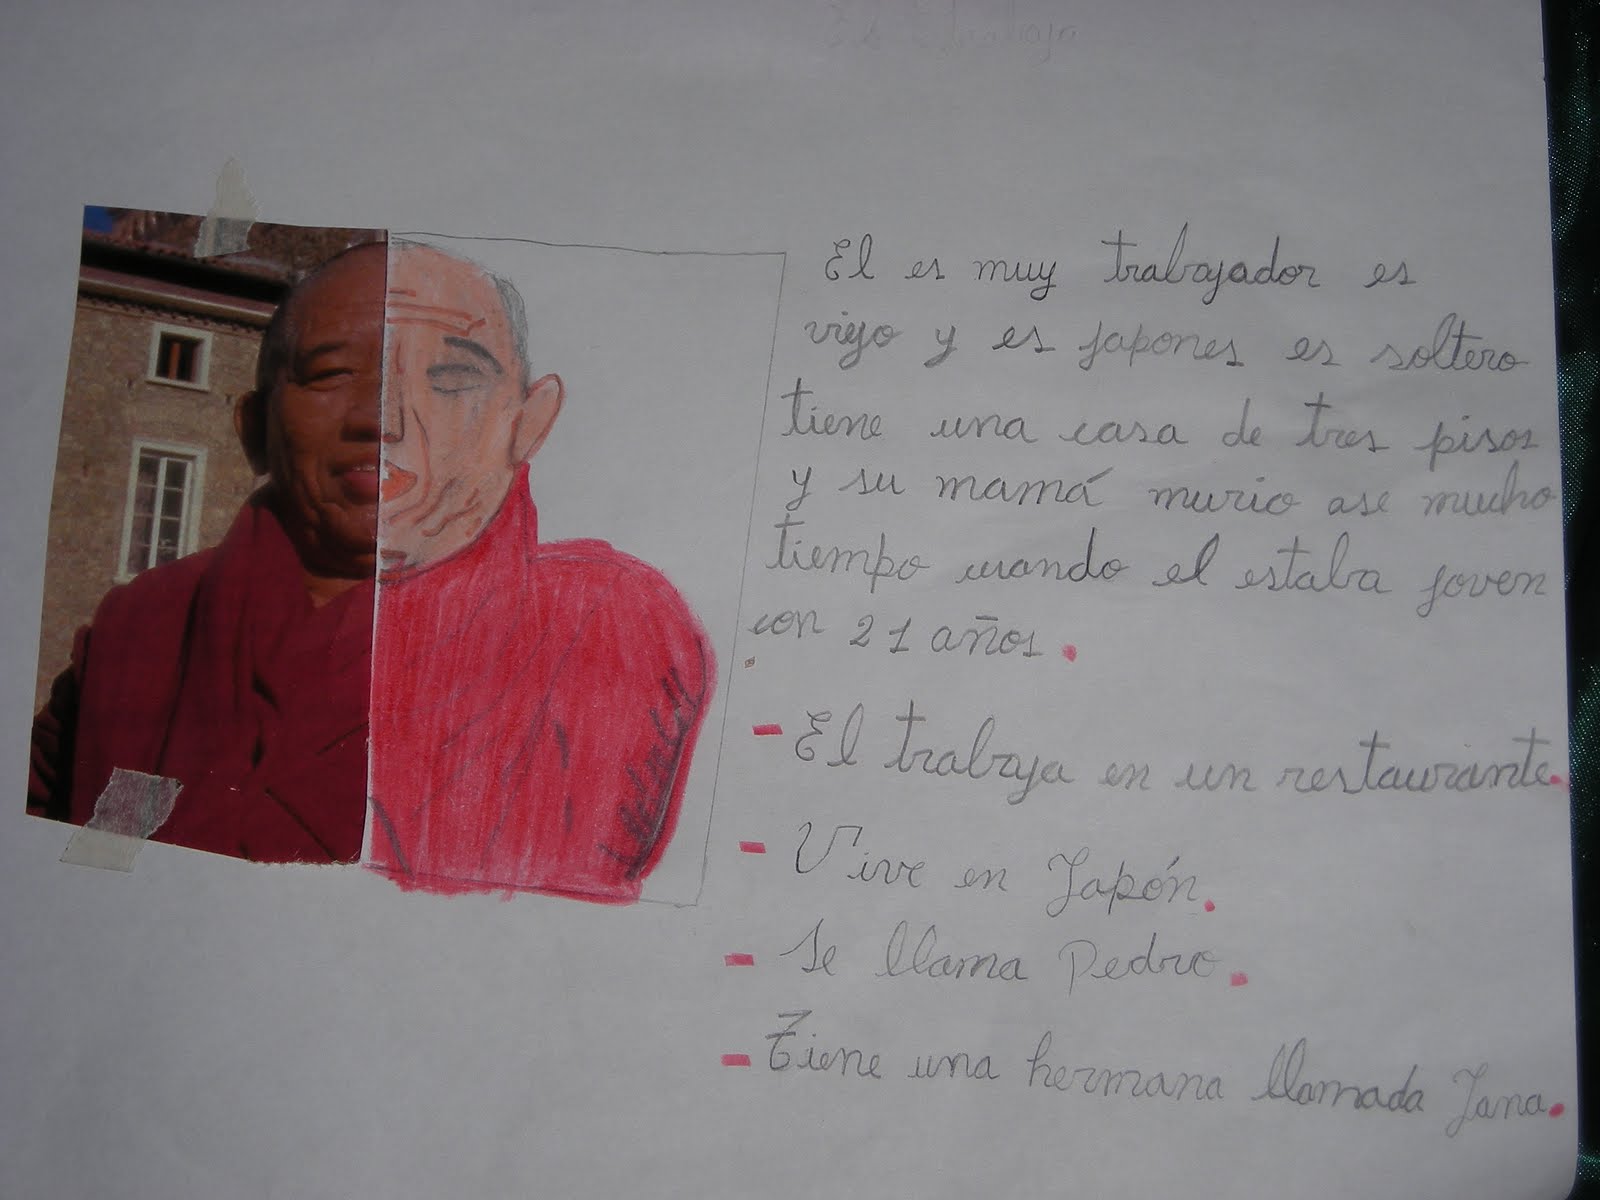 El es muy trabajador es
viejo y es japones es soltero
tiene una casa de tres pisos
y su mamá murio ase mucho
tiempo cuando el estaba joven
con 21 años.
- El trabaja en un restaurante.
- Vive en Japón.
- Se llama Pedro.
- Tiene una hermana llamada Jana.